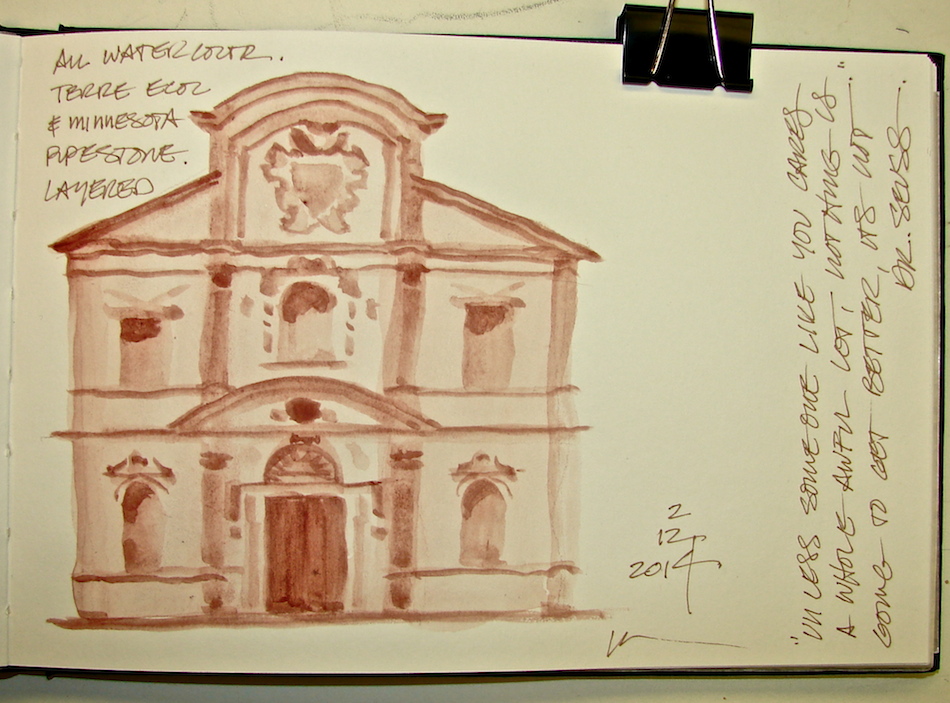 ALL WATERCOLOR.
TERRE ECOL
& MINNESOTA
PIPESTONE.
LAYERED
2
12
2014
"UNLESS SOMEONE LIKE YOU CARES
A WHOLE AWFUL LOT, NOTHING IS
GOING TO GET BETTER, ITS NOT."
DR. SEUSS.